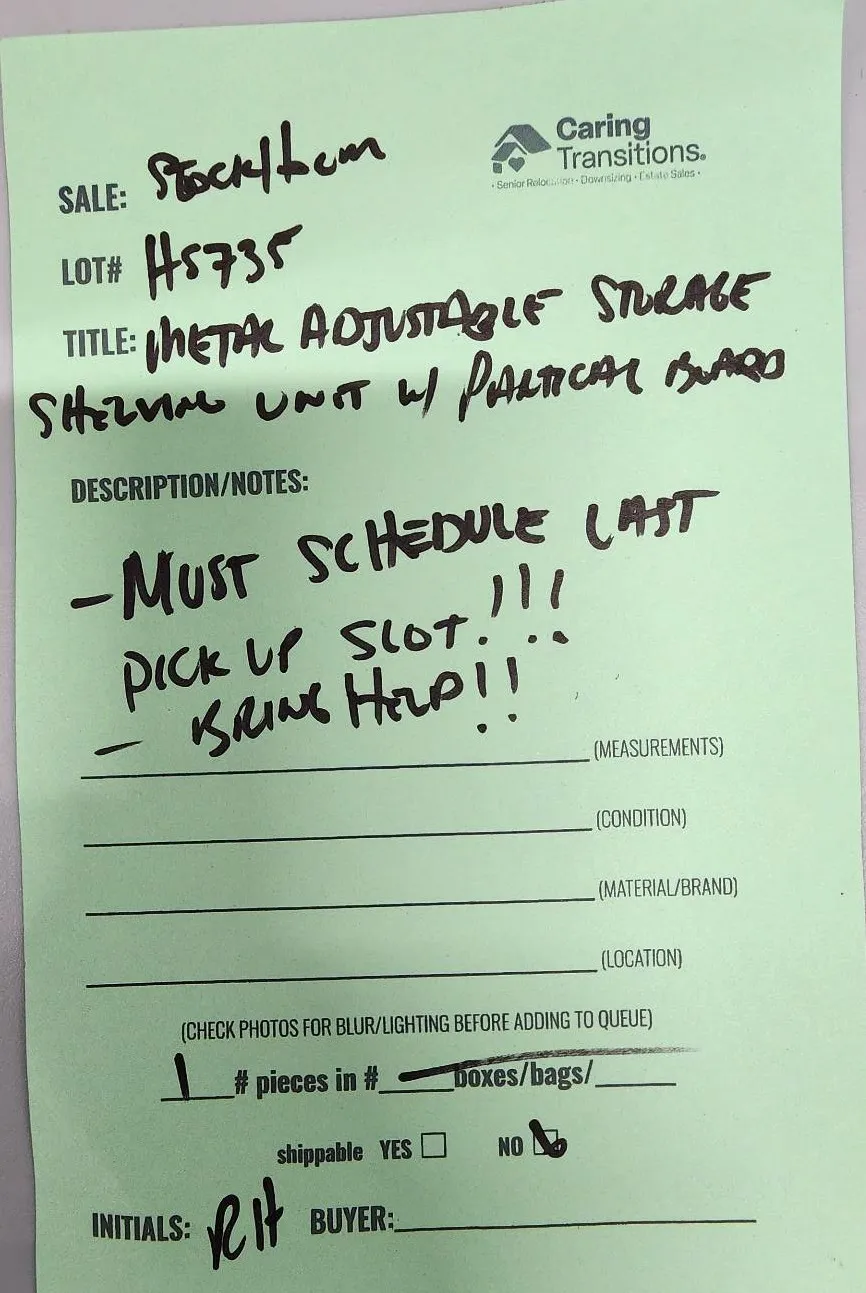 Caring
Transitions.
• Senior Relocation • Downsizing • Estate Sales •
SALE:
LOT# H5735
TITLE: METAL ADJUSTABLE STORAGE
SHELVING UNIT W/ PARTICAL BOARD
DESCRIPTION/NOTES:
- MUST SCHEDULE LAST
PICK UP SLOT.!!!
- BRING HELP!!
(MEASUREMENTS)
(CONDITION)
(MATERIAL/BRAND)
(LOCATION)
(CHECK PHOTOS FOR BLUR/LIGHTING BEFORE ADDING TO QUEUE)
1 # pieces in # boxes/bags/
shippable YES NO
INITIALS: RH BUYER: